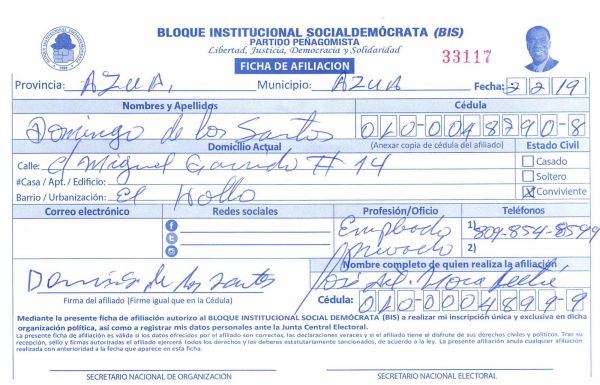 BLOQUE INSTITUCIONAL SOCIALDEMÓCRATA (BIS)
PARTIDO PEÑAGOMISTA
Libertad, Justicia, Democracia y Solidaridad
FICHA DE AFILIACION
33117
Provincia: AZUA, Municipio: AZUA Fecha: 2 2 19
Nombres y Apellidos Cédula
Domingo de los Santos 010-0048790-8
Domicilio Actual (Anexar copia de cédula del afiliado) Estado Civil
Calle: C/ Miguel # 14 Casado
#Casa / Apt. / Edificio: Soltero
Barrio / Urbanización: El Hollo X Conviviente
Correo electrónico Redes sociales Profesión/Oficio Teléfonos
Empleado 1) 809-854-8599
privado 2)
Nombre completo de quien realiza la afiliación
Domingo de los santos José
Firma del afiliado (Firme igual que en la Cédula) Cédula: 010-0004899-9
Mediante la presente ficha de afiliación autorizo al BLOQUE INSTITUCIONAL SOCIAL DEMÓCRATA (BIS) a realizar mi inscripción única y exclusiva en dicha
organización política, así como a registrar mis datos personales ante la Junta Central Electoral.
La presente ficha de afiliación es válida si los datos ofrecidos por el afiliado son correctos, las declaraciones veraces y si el afiliado tiene el disfrute de sus derechos civiles y políticos. Tras su
recepción, sello y firmas autorizadas el afiliado ejercerá todos los derechos y los deberes estatutariamente sancionados, de acuerdo a la ley. La presente afiliación anula cualquier afiliación
realizada con anterioridad a la fecha que aparece en esta ficha.
SECRETARIO NACIONAL DE ORGANIZACIÓN SECRETARIO NACIONAL ELECTORAL